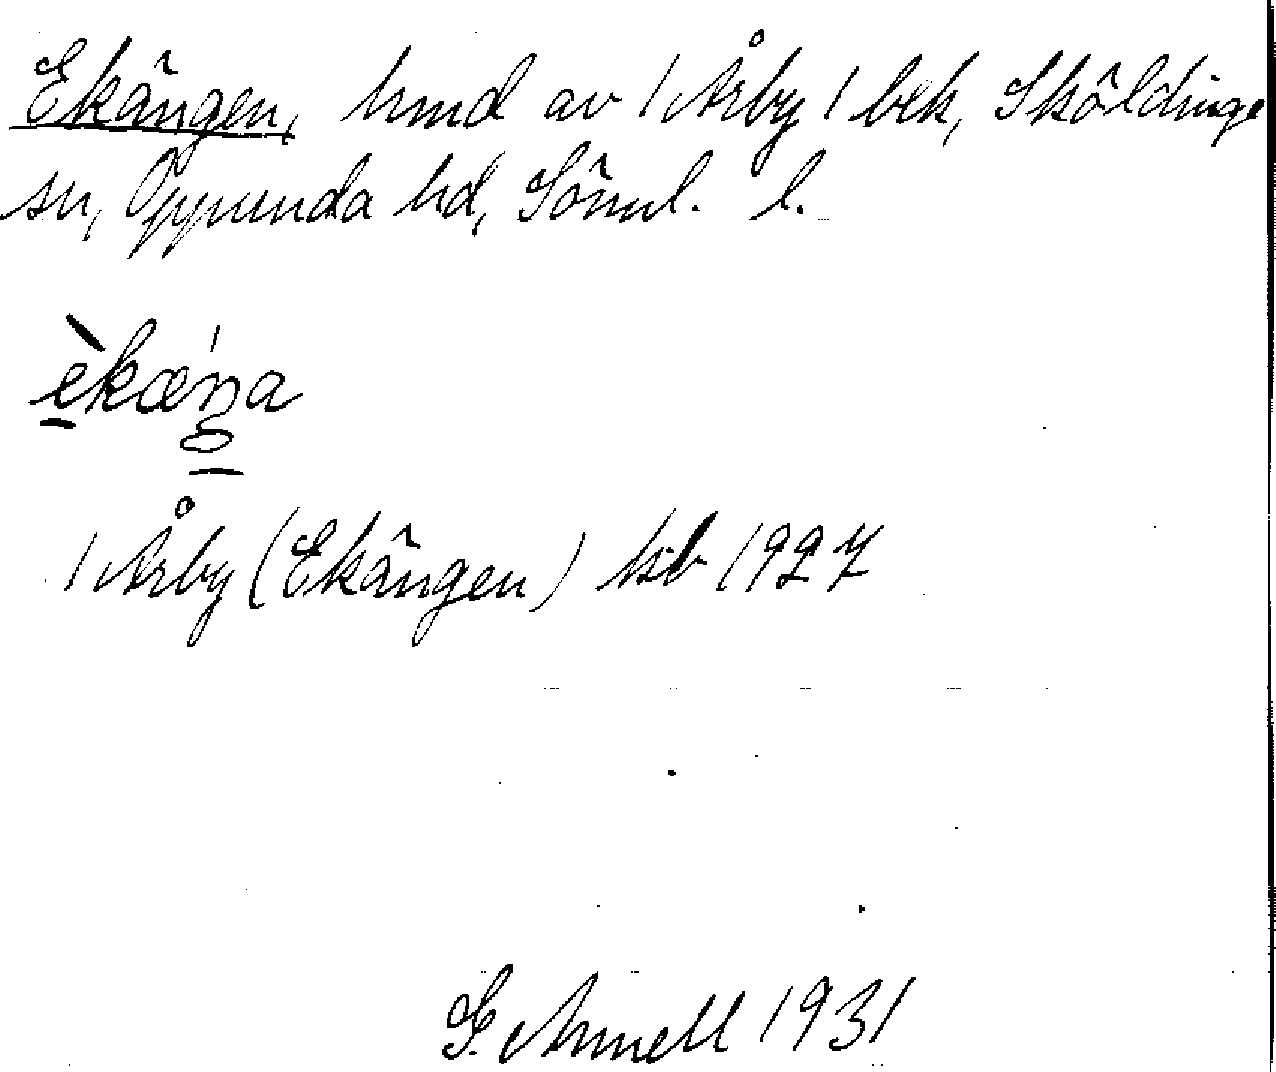 Ekängen, hmd av 1 Årby 1 bek, Sköldinge
sn, Oppunda hd, Söml. l.
èkæŋa
1 Årby (Ekängen) hsb 1927
G. Arnell 1931